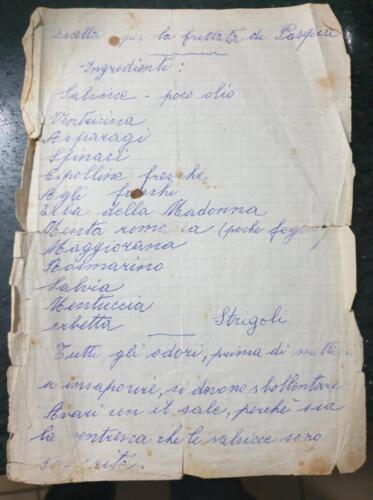 Ricetta per la frittata di Pasqua
Ingredienti:
Salsicce - poco olio
Ventricina
Asparagi
Spinaci
Cipolline fresche
Agli freschi
Erba della Madonna
Menta romana (poche foglie)
Maggiorana
Rosmarino
Salvia
Mentuccia
erbetta Strigoli
Tutti gli odori, prima di metterli
a insaporire, si devono sbollentare
Avari con il sale, perché sia
la ventresca che le salsicce sono
saporite.